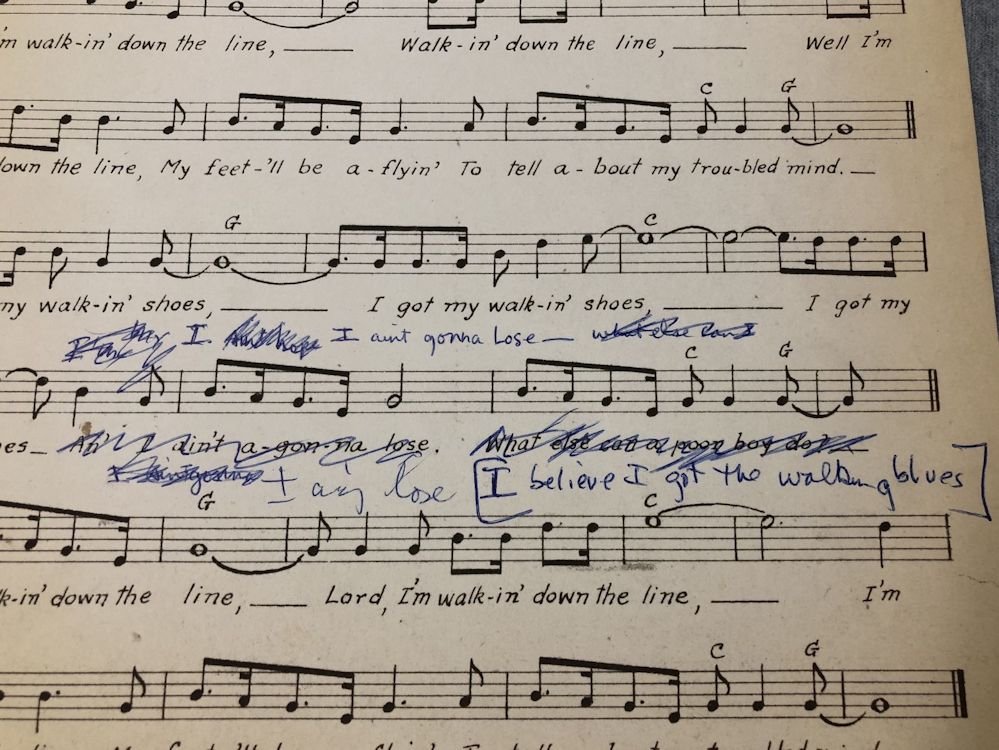 'm walk-in' down the line, Walk-in' down the line, Well I'm
C G
own the line, My feet-'ll be a-flyin' To tell a-bout my trou-bled mind.
G C
my walk-in' shoes, I got my walk-in' shoes, I got my
I I aint gonna Lose — what else can I
C G
es_ An' I ain't a-gon-na lose. What else can a poor boy do?
I lose [I believe I got the walking blues]
G C
k-in' down the line, Lord, I'm walk-in' down the line, I'm
C G